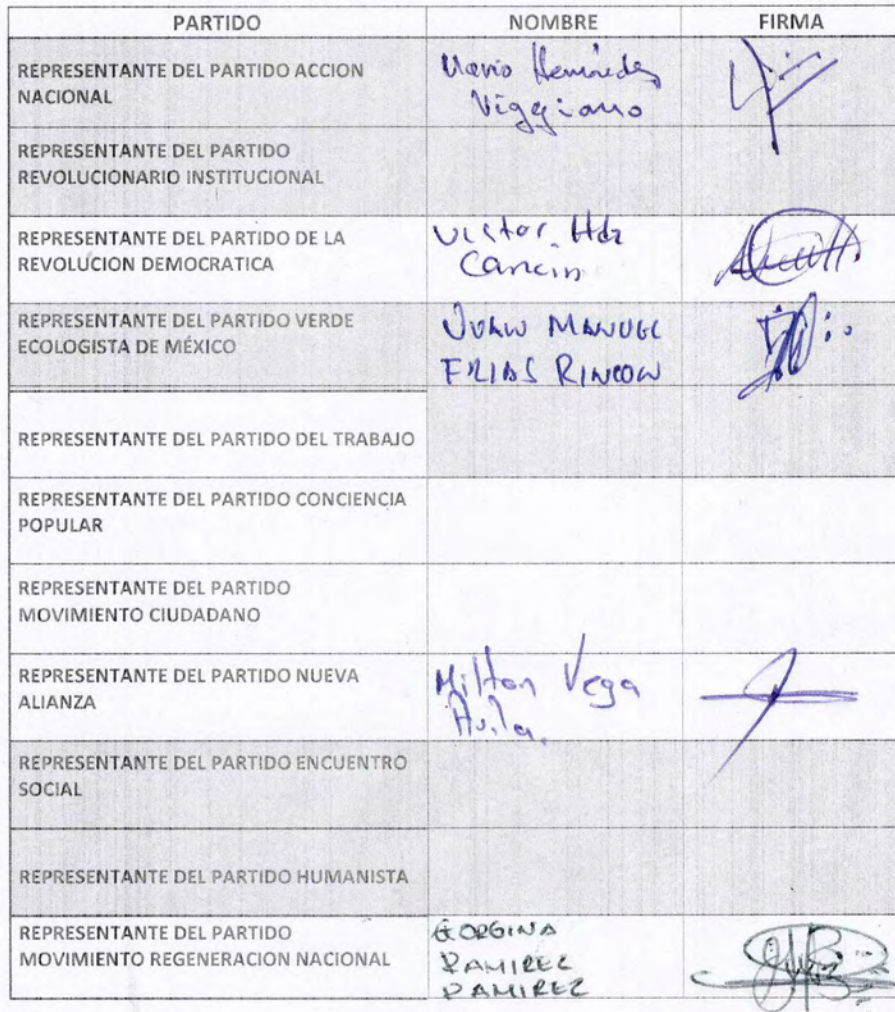 PARTIDO NOMBRE FIRMA
REPRESENTANTE DEL PARTIDO ACCION
NACIONAL
Mario Hernández
Viggiano
REPRESENTANTE DEL PARTIDO
REVOLUCIONARIO INSTITUCIONAL
REPRESENTANTE DEL PARTIDO DE LA
REVOLUCION DEMOCRATICA
Victor Hdz
REPRESENTANTE DEL PARTIDO VERDE
ECOLOGISTA DE MÉXICO
JUAN MANUEL
FRIAS RINCON
REPRESENTANTE DEL PARTIDO DEL TRABAJO
REPRESENTANTE DEL PARTIDO CONCIENCIA
POPULAR
REPRESENTANTE DEL PARTIDO
MOVIMIENTO CIUDADANO
REPRESENTANTE DEL PARTIDO NUEVA
ALIANZA
Milton Vega
Avila.
REPRESENTANTE DEL PARTIDO ENCUENTRO
SOCIAL
REPRESENTANTE DEL PARTIDO HUMANISTA
REPRESENTANTE DEL PARTIDO
MOVIMIENTO REGENERACION NACIONAL
GEORGINA
RAMIREZ
RAMIREZ